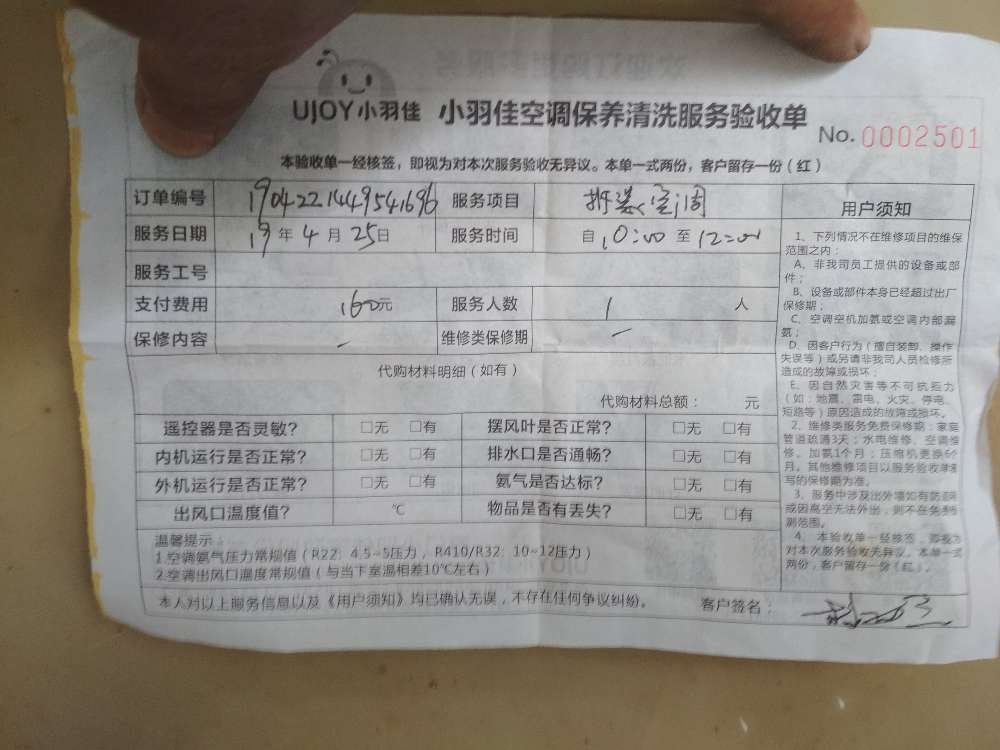 UJOY小羽佳 小羽佳空调保养清洗服务验收单
No. 0002501
本验收单一经核签，即视为对本次服务验收无异议。本单一式两份，客户留存一份（红）
订单编号 1904221449541696 服务项目 拆装空调
服务日期 19年4月25日 服务时间 自10:00至12:00
服务工号
支付费用 160元 服务人数 1 人
保修内容 — 维修类保修期 —
代购材料明细（如有）
代购材料总额： 元
遥控器是否灵敏？ □无 □有 摆风叶是否正常？ □无 □有
内机运行是否正常？ □无 □有 排水口是否通畅？ □无 □有
外机运行是否正常？ □无 □有 氨气是否达标？ □无 □有
出风口温度值？ ℃ 物品是否有丢失？ □无 □有
温馨提示：
1.空调氨气压力常规值（R22：4.5~5压力，R410/R32：10~12压力）
2.空调出风口温度常规值（与当下室温相差10℃左右）
本人对以上服务信息以及《用户须知》均已确认无误，不存在任何争议纠纷。 客户签名：
用户须知
1、下列情况不在维修项目的维保
范围之内：
A、非我司员工提供的设备或部
件；
B、设备或部件本身已经超过出厂
保修期；
C、空调空机加氨或空调内部漏
氨；
D、因客户行为（擅自装卸、操作
失误等）或另请非我司人员检修所
造成的故障或损坏；
E、因自然灾害等不可抗拒力
（如：地震、雷电、火灾、停电、
短路等）原因造成的故障或损坏。
2、维修类服务免费保修期：家庭
管道疏通3天；水电维修、空调维
修、加氨1个月；压缩机更换6个
月。其他维修项目以服务验收单填
写的保修期为准。
3、服务中涉及出外墙如有防盗网
或因高空无法外出，则不在免费检
测范围。
4、本验收单一经核签，即视为
对本次服务验收无异议。本单一式
两份，客户留存一份（红）。